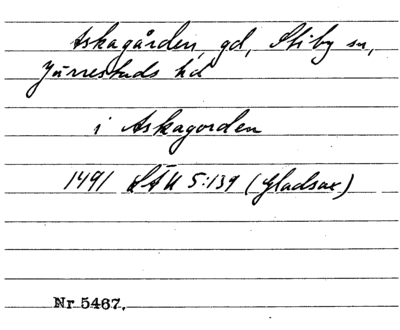 Askagården, gd, Stiby sn,
Järrestads hd
i Askagorden
1491 LÄU 5:139 (Gladsax)
Nr 5467.